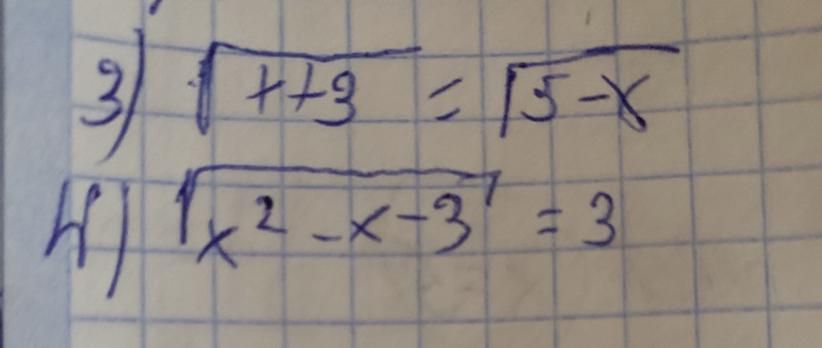 3) √(x+3) = √(5-x)
4) √(x²-x-3) = 3